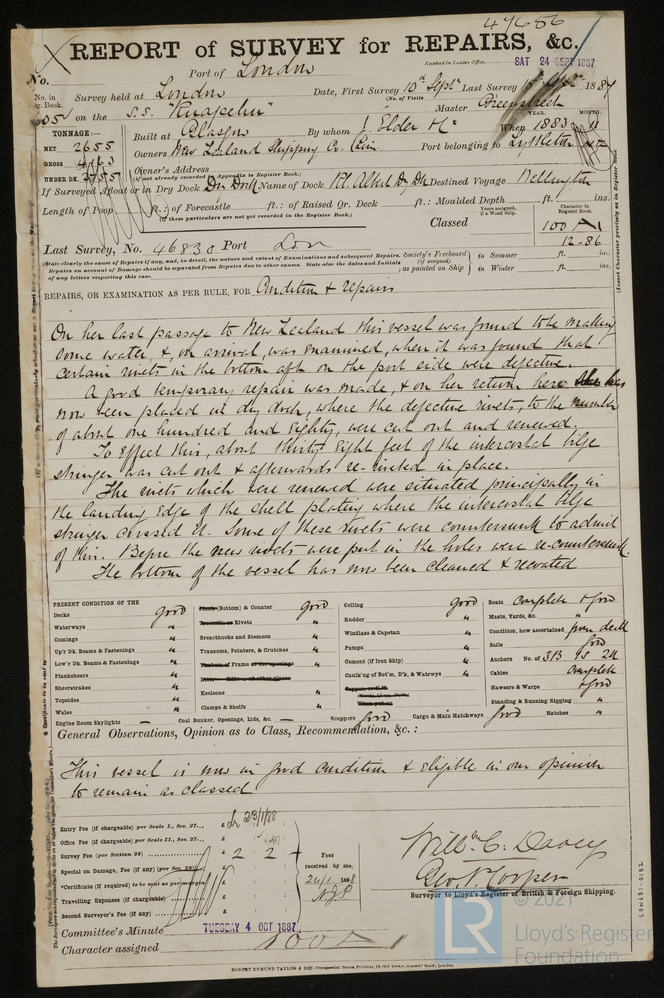 47686
REPORT of SURVEY for REPAIRS, &c.
No. Port of London Received in London Office. SAT 24 SEPT 1887
No. in Reg. Book. Survey held at London Date, First Survey 10th Septr Last Survey Septr 1887
(No. of Visits
on the S.S. "Ruapehu" Master Greenstreet
TONNAGE:— Built at Glasgow By whom J. Elder & Co When 1883 11
YEAR. MONTH.
NET 2655 Owners New Zealand Shipping Co. Lim Port belonging to Lyttleton
GROSS 4163 Owner's Address
UNDER DK. (if not already recorded in Appendix to Register Book.)
If Surveyed Afloat or in Dry Dock Dry Dock Name of Dock Rl. Albert Dry Dk Destined Voyage Wellington
Length of Poop ft.: of Forecastle ft.: of Raised Qr. Deck ft.: Moulded Depth ft. ins.
(If these particulars are not yet recorded in the Register Book.)
Classed 100 A1
Character in Register Book.
12-86
Last Survey, No. 46838 Port Lon
(State clearly the cause of Repairs if any, and, in detail, the nature and extent of Examinations and subsequent Repairs.
Repairs on account of Damage should be separated from Repairs due to other causes. State also the dates and Initials
of any letters respecting this case.
Society's Freeboard (if assigned) as painted on Ship in Summer ft. ins.
in Winter ft. ins.
REPAIRS, OR EXAMINATION AS PER RULE, FOR Condition & repairs
On her last passage to New Zealand this vessel was found to be making
some water, &, on arrival, was examined, when it was found that
certain rivets in the bottom aft on the port side were defective.
A good temporary repair was made, & on her return here she has
now been placed in dry dock, where the defective rivets, to the number
of about one hundred and eighty, were cut out and renewed.
To effect this, about thirty eight feet of the intercostal bilge
stringer was cut out & afterwards re-riveted in place.
The rivets which were renewed were situated principally in
the landing edge of the shell plating where the intercostal bilge
stringer crossed it. Some of these rivets were countersunk to admit
of this. Before the new rivets were put in the holes were re-countersunk.
The bottom of the vessel has now been cleaned & recoated
PRESENT CONDITION OF THE
Decks good
Waterways "
Comings "
Up'r Dk. Beams & Fastenings "
Low'r Dk. Beams & Fastenings "
Planksheers "
Sheerstrakes "
Topsides "
Wales "
Engine Room Skylights —
Plank (Bottom) & Counter good
Treenails or Rivets "
Breasthooks and Stemson "
Transoms, Pointers, & Crutches "
Timbers of Frame at the openings "
Keelsons "
Clamps & Shelfs "
Coal Bunker, Openings, Lids, &c. —
Ceiling good
Rudder "
Windlass & Capstan "
Pumps "
Cement (if Iron Ship) "
Caulk'ng of Bot'm, D'k, & Watrwys "
Scuppers good Cargo & Main Hatchways good Hatches "
Boats complete & good
Masts, Yards, &c. "
Condition, how ascertained from deck
Sails good
Anchors No. of 3B 1S 2K
Cables complete
Hawsers & Warps & good
Standing & Running Rigging "
General Observations, Opinion as to Class, Recommendation, &c.:
This vessel is now in good condition & eligible in our opinion
to remain as classed
Entry Fee (if chargeable) per Scale I., Sec. 27... £
Office Fee (if chargeable) per Scale II., Sec. 27... £
Survey Fee (per Section 28) £ 2 2
Special on Damage, Fee (if any) (per Sec. 28) £
*Certificate (if required) to be sent as per margin £
Travelling Expenses (if chargeable) £
Second Surveyor's Fee (if any) £
Fees
received by me,
24/1 1888
Willm. C. Davey
Geo. Hooper
Surveyor to Lloyd's Register of British & Foreign Shipping.
Committee's Minute TUESDAY 4 OCT 1887
Character assigned 100 A1
ROBERT EDMUND TAYLOR & SON, Commercial Steam Printers, 19, Old Street, Goswell Road, London.
LON681-0182
© 2021
LR
Lloyd's Register
Foundation